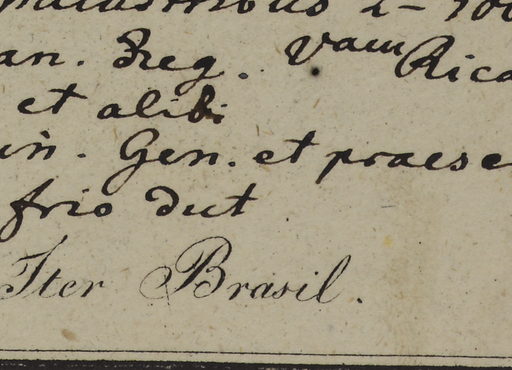 an. Reg. Vam Rica
et alibi
in. Gen. et praese
frio dut
Iter Brasil.